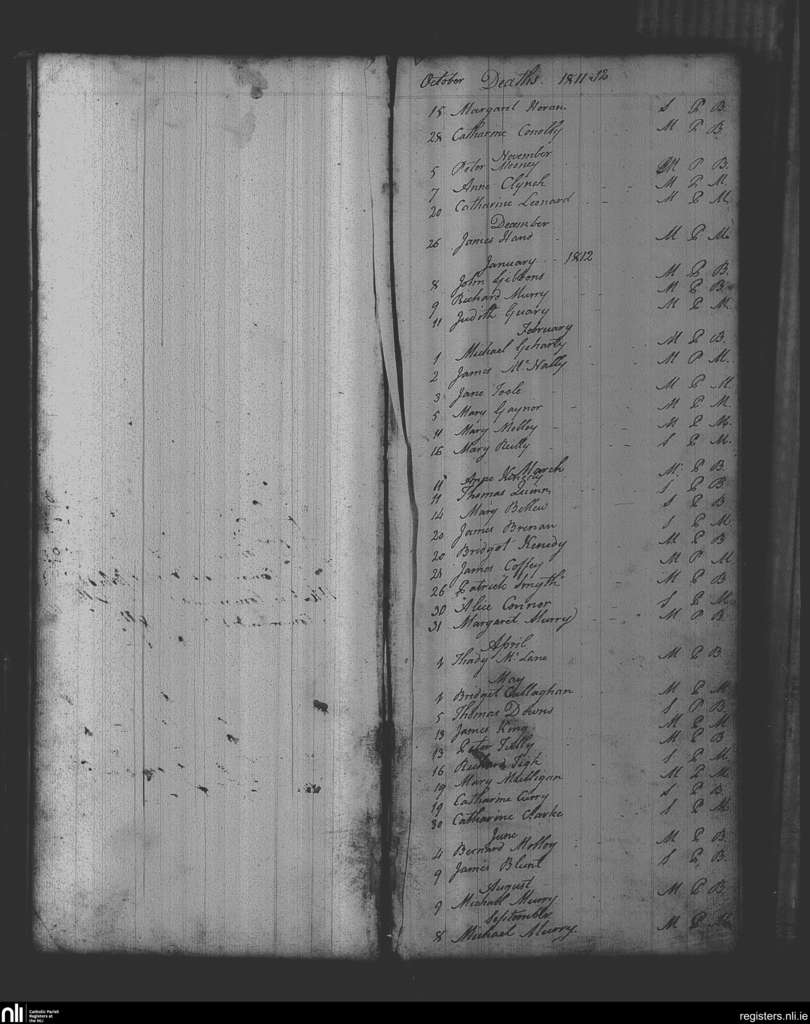 October Deaths. 1811-12
18 Margaret Horan S P B.
28 Catharine Conolly M P B.
November
5 Peter Mooney M P B.
7 Anne Clynch M P M
20 Catharine Leonard M P M.
December
26 James Hand M P M.
January 1812
8 John Gibbons M P B.
9 Richard Murry M P B.
11 Judith Geary M P M.
February
1 Michael Geharty M P B.
2 James McNally M P M.
3 Jane Toole M P M.
5 Mary Gaynor M P M.
11 Mary Molloy M P M.
16 Mary Reilly S P M.
March
11 Anne M. P B.
11 Thomas Quinn S P B.
14 Mary Bellew S P B
20 James Brenan S P M.
20 Bridget Kenedy M P B
24 James Coffey M P M
26 Patrick Smyth M P B
30 Alice Connor S P M.
31 Margaret Murry M P B.
April
4 Thady McLane M P B.
May
4 Bridget Callaghan M P M.
5 Thomas Downs S P B.
13 James King M P M
13 Peter M P B
16 Tigh S P M.
19 Mary Mulligan M P M.
19 Catharine Curry S P B.
30 Catharine Clarke S P M.
June
4 Bernard Molloy M P B
9 James Blunt S P B.
August
9 Michael Murry M P B.
September
8 Michael Murry M P M.
nli
Catholic Parish
Registers at
the NLI
registers.nli.ie